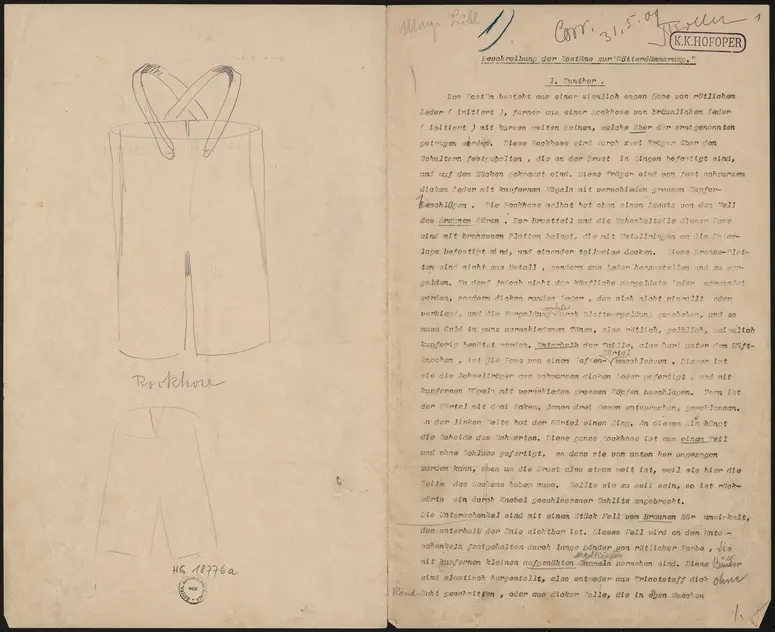 Rockhose
HS 18776a
1)
Corr. 31.5.09
Roller
1
K.K. HOFOPER
Beschreibung der Kostüme zur "Götterdämmerung."
1. Gunther.
Das Kostüm besteht aus einer ziemlich engen Hose von rötlichem
Leder ( imitiert ), ferner aus einer Rockhose von bräunlichem Leder
( imitiert ) mit kurzen weiten Beinen, welche über der erstgenannten
getragen werden. Diese Rockhose wird durch zwei Träger über den
Schultern festgehalten , die an der Brust in Ringen befestigt sind,
und auf dem Rücken gekreuzt sind. Diese Träger sind von fast schwarzem
dicken Leder mit kupfernen Nägeln mit verschieden grossen Kupfer-
beschlägen . Die Rockhose selbst hat oben einen Besatz von dem Fell
des Braunen Bären . Der Brustteil und die Schenkelteile dieser Hose
sind mit bronzenen Platten belegt, die mit Metallringen an die Unter-
lage befestigt sind, und einander teilweise decken. Diese Bronze-Plat-
ten sind nicht aus Metall , sondern aus Leder herzustellen und zu ver-
golden. Es darf jedoch nicht das käufliche vergoldete Leder verwendet
werden, sondern dickes Leder , das sich nicht einrollt oder
verbiegt, und die Vergoldung durch Blattvergoldung geschehen, und es
muss Gold in ganz verschiedenen Tönen, also rötlich, gelblich,
kupferig benützt werden. Unterhalb der Taille, also hart unter dem Hüft-
knochen , ist die Hose von einem Gürtel umschlossen . Dieser ist
wie die Achselträger aus schwarzem dicken Leder gefertigt , und mit
kupfernen Nägeln mit verschieden grossen Köpfen beschlagen. Vorn ist
der Gürtel mit drei Haken, denen drei Oesen entsprechen, geschlossen.
An der linken Seite hat der Gürtel einen Ring. An diesem hängt
die Scheide des Schwertes. Diese ganze Rockhose ist aus einem Teil
und ohne Schluss gefertigt, so dass sie von unten her angezogen
werden kann, oben um die Brust also etwas weit ist, weil sie hier die
Weite des Beckens haben muss. Sollte sie zu weit sein, so ist rück-
wärts ein durch Knebel geschlossener Schlitz angebracht.
Die Unterschenkel sind mit einem Stück Fell vom Braunen Bär umwickelt,
das unterhalb der Knie sichtbar ist. Dieses Fell wird an den Unter-
schenkeln festgehalten durch lange Bänder von rötlicher Farbe , die
mit kupfernen kleinen aufgenähten versehen sind. Diese Bänder
sind elastisch hergestellt, also entweder aus Tricotstoff dick ohne
Naht geschnitten , oder aus dicker Wolle, die in Maschen